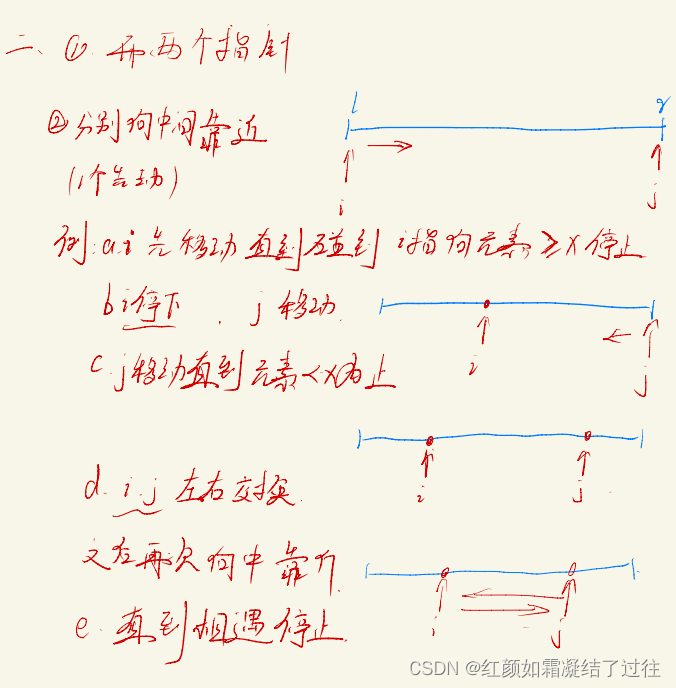 二、① 用两个指针
②分别向中间靠近
(1个先动)
l r
i j
例:a.i先移动直到碰到 i指向元素≥x停止
b i停下 . j移动.
i j
c.j移动直到元素<x为止
i j
d. i.j 左右交换.
之后再次向中靠近
i j
e. 直到相遇停止.
CSDN @红颜如霜凝结了过往